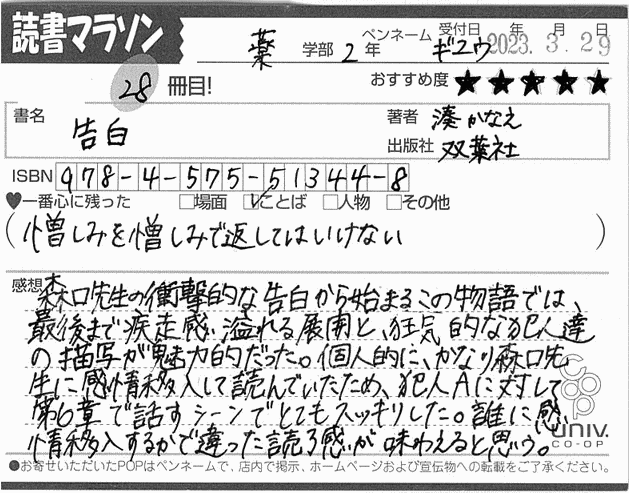 読書マラソン
薬 学部 2 年 ペンネーム ギュウ 受付日 年 月 日
2023. 3. 29
28 冊目! おすすめ度 ★★★★★
書名 告白
著者 湊かなえ
出版社 双葉社
ISBN 978-4-575-51344-8
♥一番心に残った □場面 ☑ことば □人物 □その他
(憎しみを憎しみで返してはいけない)
感想 森口先生の衝撃的な告白から始まるこの物語では、
最後まで疾走感溢れる展開と、狂気的な犯人達
の描写が魅力的だった。個人的に、かなり森口先
生に感情移入して読んでいたため、犯人Aに対して
第6章で話すシーンでとてもスッキリした。誰に感
情移入するかで違った読了感が味わえると思う。
coop
UNIV.
CO-OP
●お寄せいただいたPOPはペンネームで、店内で掲示、ホームページおよび宣伝物への転載をご了承ください。